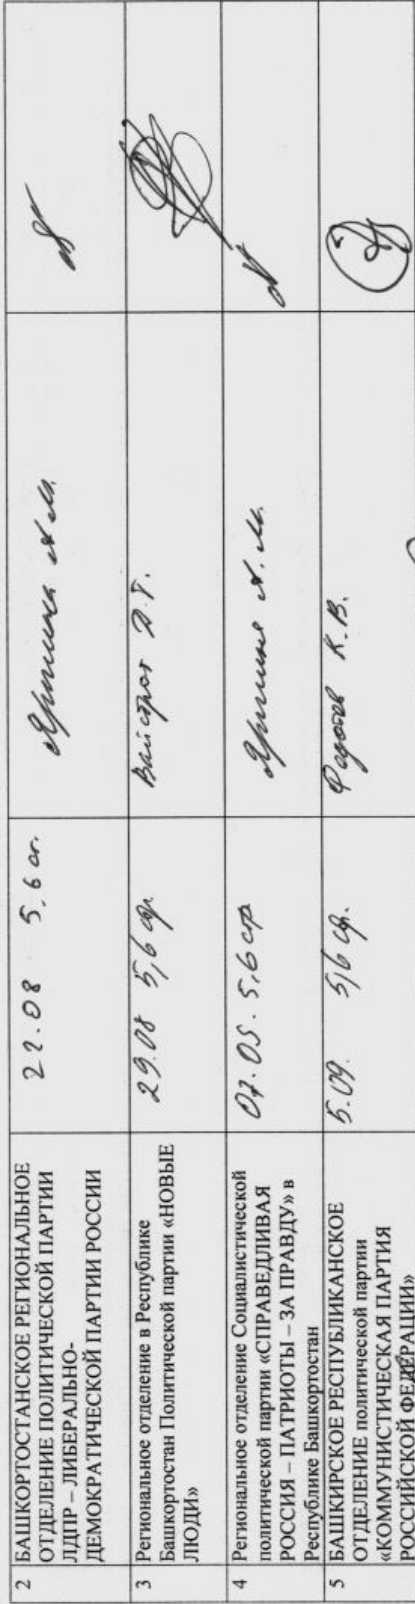 2
БАШКОРТОСТАНСКОЕ РЕГИОНАЛЬНОЕ
ОТДЕЛЕНИЕ ПОЛИТИЧЕСКОЙ ПАРТИИ
ЛДПР – ЛИБЕРАЛЬНО-
ДЕМОКРАТИЧЕСКОЙ ПАРТИИ РОССИИ
22.08 5,6 ст.
А.М.
3
Региональное отделение в Республике
Башкортостан Политической партии «НОВЫЕ
ЛЮДИ»
29.08 5,6 ср.
4
Региональное отделение Социалистической
политической партии «СПРАВЕДЛИВАЯ
РОССИЯ – ПАТРИОТЫ – ЗА ПРАВДУ» в
Республике Башкортостан
5,6 ср
А.М.
5
БАШКИРСКОЕ РЕСПУБЛИКАНСКОЕ
ОТДЕЛЕНИЕ политической партии
«КОММУНИСТИЧЕСКАЯ ПАРТИЯ
РОССИЙСКОЙ ФЕДЕРАЦИИ»
5.09. 5,6 ср.
К.В.